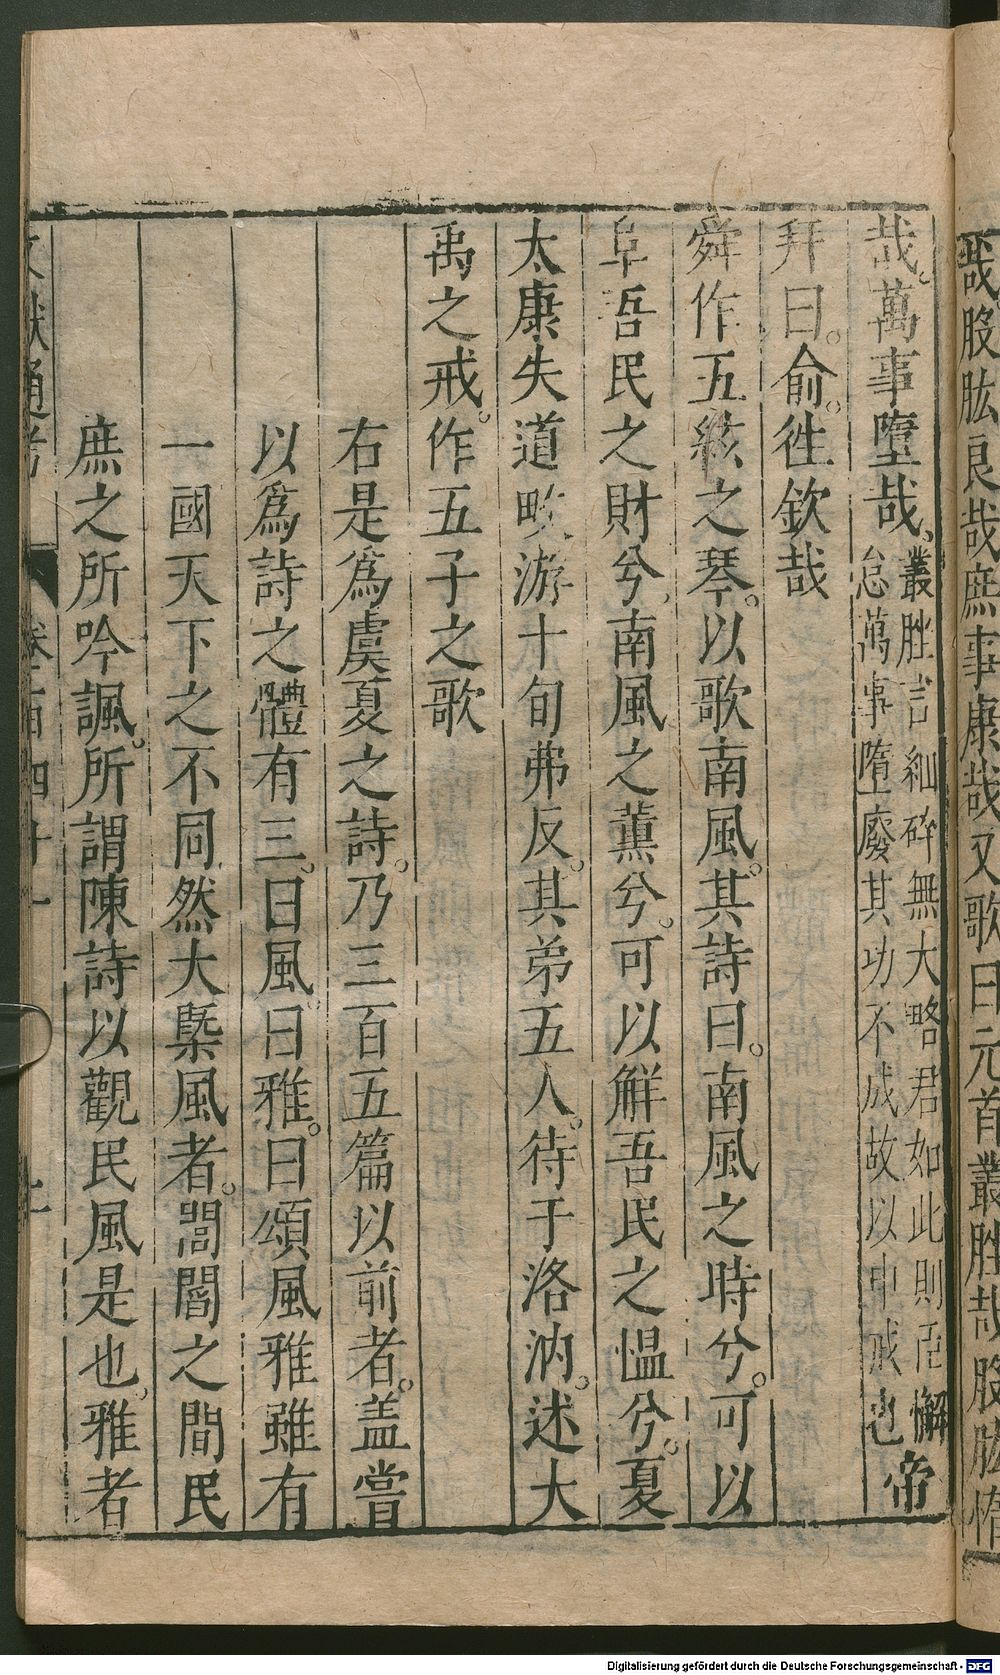 哉股肱良哉庶事康哉又歌曰元首叢脞哉股肱惰
哉萬事墮哉
叢脞言細碎無大略君如此則臣懈
怠萬事墮廢其功不成故以申戒也
帝
拜曰俞徃欽哉
舜作五絃之琴以歌南風其詩曰南風之時兮可以
阜吾民之財兮南風之薰兮可以解吾民之慍兮夏
太康失道畋游十旬弗反其弟五人待于洛汭述大
禹之戒作五子之歌
右是爲虞夏之詩乃三百五篇以前者盖嘗
以爲詩之體有三曰風曰雅曰頌風雅雖有
一國天下之不同然大槩風者閭閻之間民
庶之所吟諷所謂陳詩以觀民風是也雅者
文獻通考
卷一百四十一
Digitalisierung gefördert durch die Deutsche Forschungsgemeinschaft - DFG